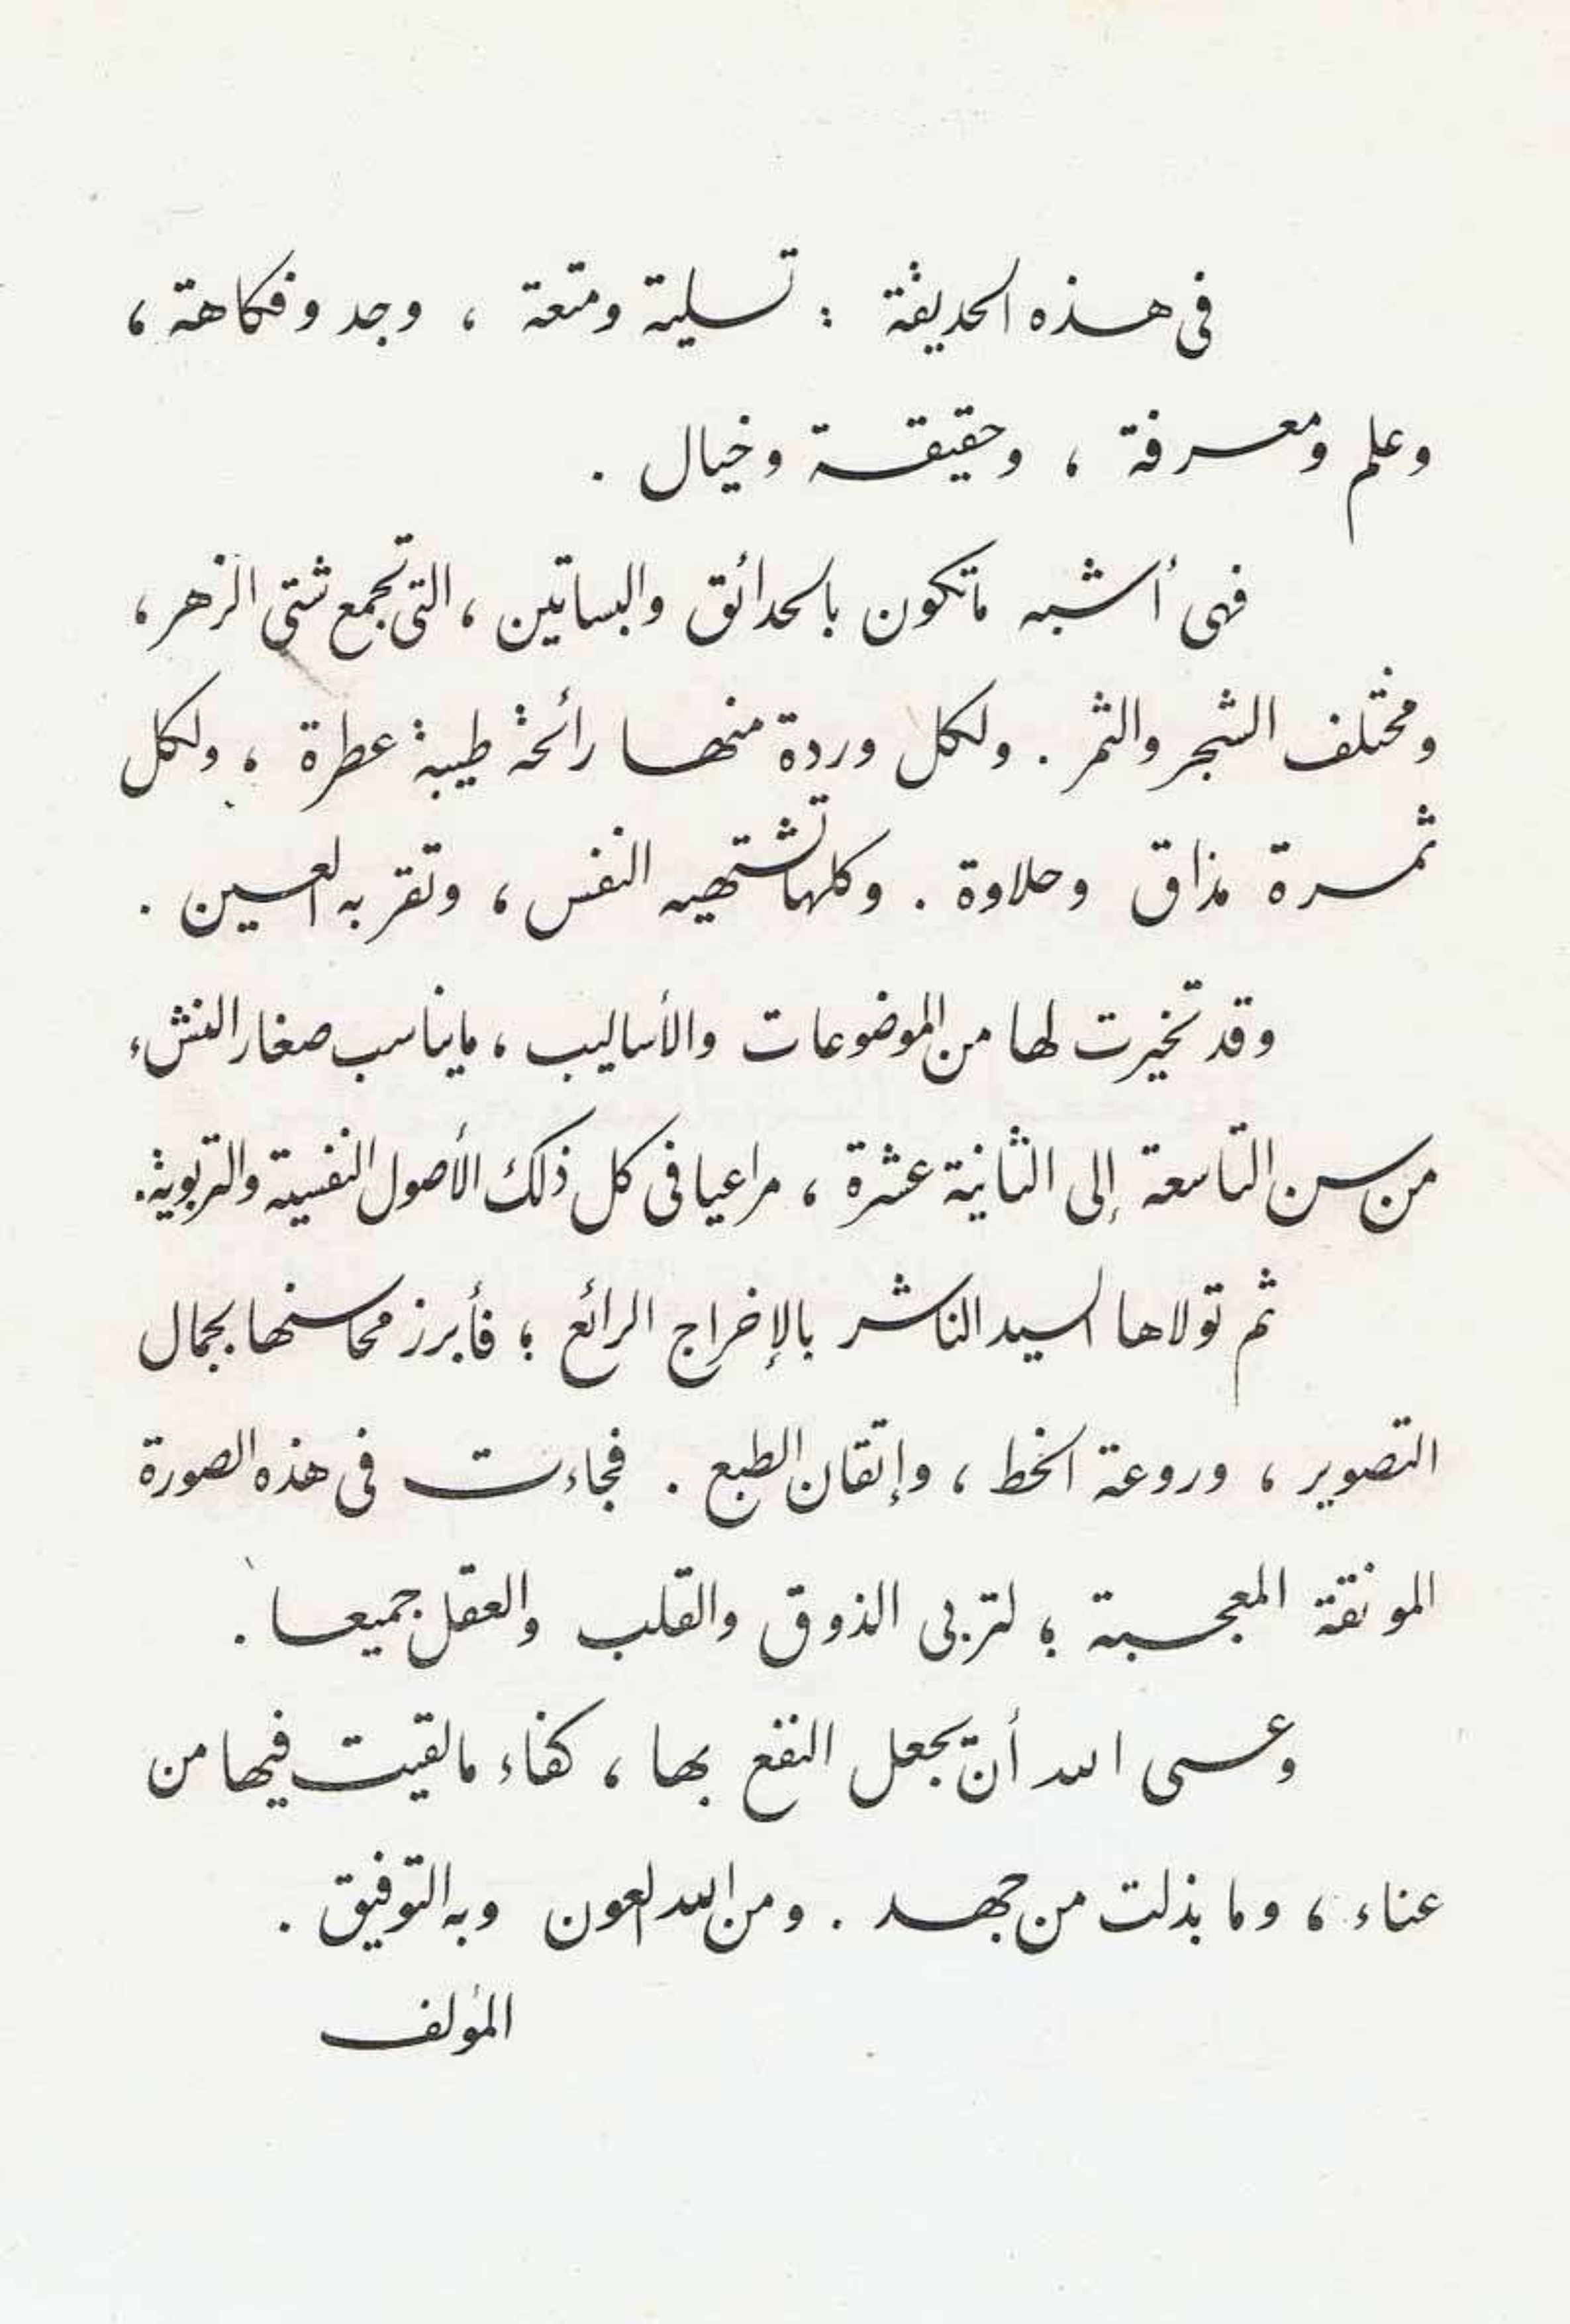 فى هذه الحديقة : تسلية ومتعة ، وجد وفكاهة ،
وعلم ومعرفة ، وحقيقة وخيال .
فهى أشبه ماتكون بالحدائق والبساتين ، التى تجمع شتى الزهر ،
ومختلف الشجر والثمر . ولكل وردة منها رائحة طيبة عطرة ، ولكل
ثمرة مذاق وحلاوة . وكلها تشتهيه النفس ، وتقر به العين .
وقد تخيرت لها من الموضوعات والأساليب ، مايناسب صغار النشء
من سن التاسعة إلى الثانية عشرة ، مراعيا فى كل ذلك الأصول النفسية والتربوية .
ثم تولاها السيد الناشر بالإخراج الرائع ؛ فأبرز محاسنها بجمال
التصوير ، وروعة الخط ، وإتقان الطبع . فجاءت فى هذه الصورة
المونقة المعجبة ؛ لتربى الذوق والقلب والعقل جميعا .
وعسى الله أن يجعل النفع بها ، كفاء مالقيت فيها من
عناء ، وما بذلت من جهد . ومن الله العون وبه التوفيق .
المؤلف